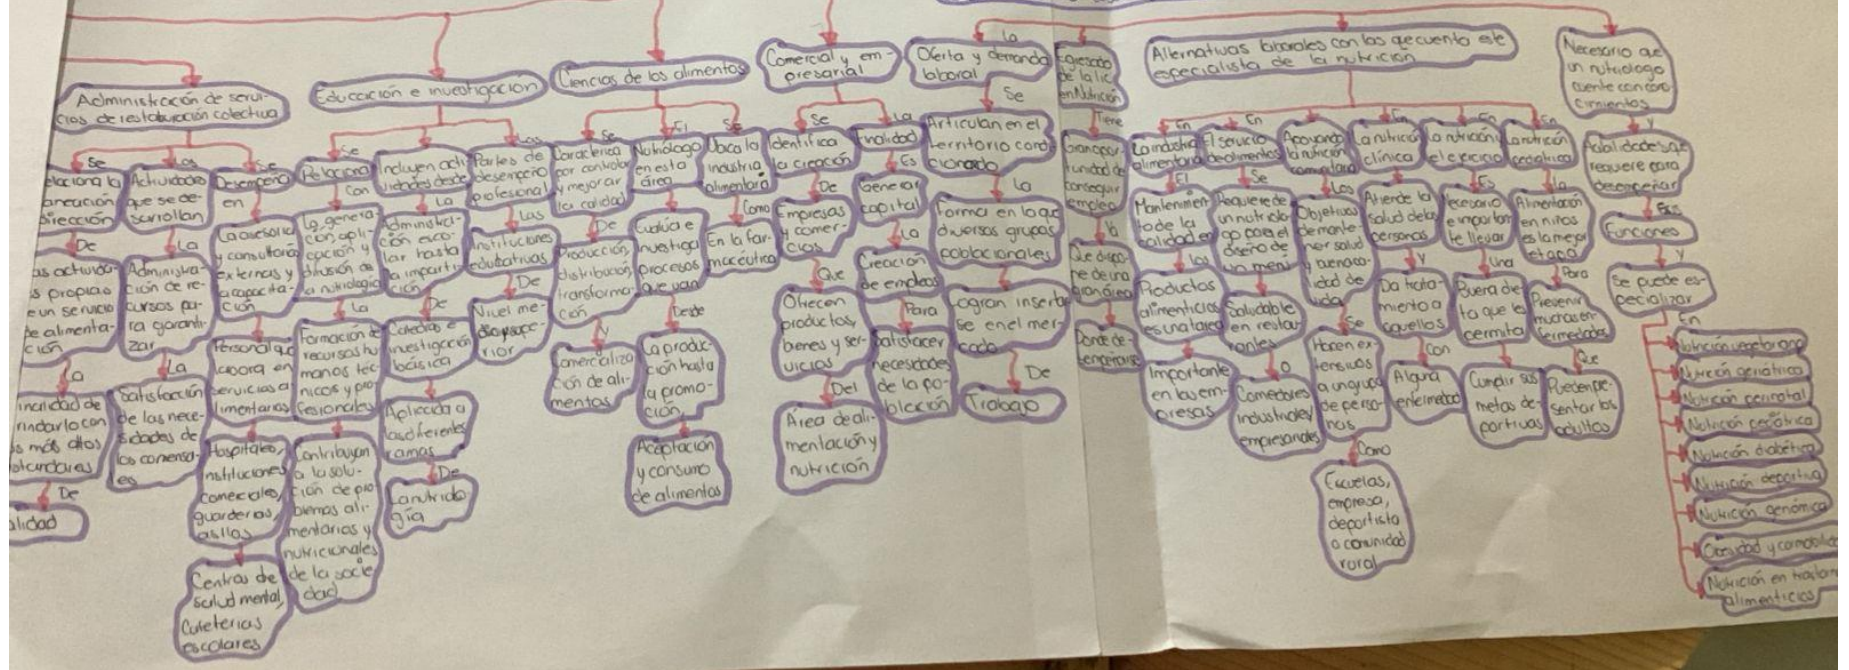 Administración de servi-
cios de restauración colectiva
Se
elaciona la
planeación
dirección
De
as activida
s propias
e un servicio
de alimenta-
ción
La
indarlo con
s más altos
De
alidad
Las
Actividades
que se de-
sarrollan
La
Administra-
ción de re-
cursos pa-
ra garanti-
zar
La
Satisfacción
de las nece-
sidades de
los comensa-
es
Se
Desempeña
en
La asesoria
y consultoria
externas y
la capacita-
ción
Personal que
labora en
servicios a-
limentarios
Hospitales,
instituciones
comerciales,
guarderias,
asilos
Centros de
salud mental,
Cafeterias
escolares
Educación e investigación
Se
Relaciona
Con
La genera-
ción apli-
cación y
difusión de
la nutriologia
La
Formación de
recursos hu
manos téc-
nicos y pro-
fesionales
Contribuyan
a la solu-
ción de pro
blemas ali-
mentarios y
nutricionales
de la socie
dad
Incluyen acti
vidades desde
La
Administra-
ción esco-
lar hasta
la imparti-
ción
De
Catedras e
investigación
básica
Aplicada a
las diferentes
ramas
De
La nutriolo-
gía
Las
Partes de
desempeño
profesional
Las
Instituciones
educativas
De
Nivel me-
dio y supe-
rior
Ciencias de los alimentos
Se
Caracteriza
por controlar
y mejorar
la calidad
De
Producción,
distribución,
transforma-
ción
y
Comercializa
ción de ali-
mentos
El
Nutriologo
en esta
área
Evalúa e
investiga
procesos
que van
Desde
La produc-
ción hasta
la promo-
ción,
Aceptación
y consumo
de alimentos
Se
Ubica la
industria
alimentaria
Como
En la far-
macéutica
Comercial y em-
presarial
Se
Identifica
la creación
De
Empresas
y comer-
cios
Que
Ofrecen
productos,
bienes y ser-
vicios
Del
Área de ali-
mentación y
nutrición
La
Finalidad
Es
Generar
capital
La
Creación
de empleos
Para
Satisfacer
necesidades
de la po-
blación
La
Oferta y demanda
laboral
Se
Articulan en el
territorio condi
cionado
La
Forma en la que
diversos grupos
poblacionales
Logran insertar
se en el mer-
cado
De
Trabajo
Egresado
de la lic
en Nutrición
Tiene
Gran opor-
tunidad de
conseguir
empleo
Que dispo-
ne de una
gran área
Donde de-
Alternativas laborales con las que cuenta este
especialista de la nutrición
En
La industria
alimentaria
El
Mantenimien
to de la
calidad en
Los
Productos
alimenticios
es una tarea
Importante
en las em-
presas
En
El servicio
de alimentos
Se
Requiere de
un nutriolo
go para el
diseño de
un menú
Saludable
en restau-
rantes
O
Comedores
industriales/
empresariales
Apoyando
la nutrición
comunitaria
Los
Objetivos
de mante-
ner salud
y buena ca-
lidad de
vida
Se
Hacen ex-
tensivos
a un grupo
de perso-
nas
Como
Escuelas,
empresa,
deportista
o comunidad
rural
En
La nutrición
clínica
Atiende la
salud de las
personas
Y
Da trata-
miento a
aquellos
Con
Alguna
enfermedad
En
La nutrición y
el ejercicio
Es
Necesario
e importan
te llevar
Una
Buena die-
ta que les
permita
Cumplir sus
metas de-
portivas
En
La nutrición
pediatrica
La
Alimentación
en niños
es la mejor
etapa
Para
Prevenir
muchas en-
fermedades
Que
Pueden pre-
sentar los
adultos
Necesario que
un nutriologo
cuente con cono
cimientos
Y
Habilidades que
requiere para
desempeñar
Sus
Funciones
Y
Se puede es-
pecializar
En
Nutrición vegetariana
Nutrición geriátrica
Nutrición perinatal
Nutrición pediátrica
Nutrición diabética
Nutrición deportiva
Nutrición genómica
Obesidad y comorbilida
Nutrición en trastorn
alimenticios